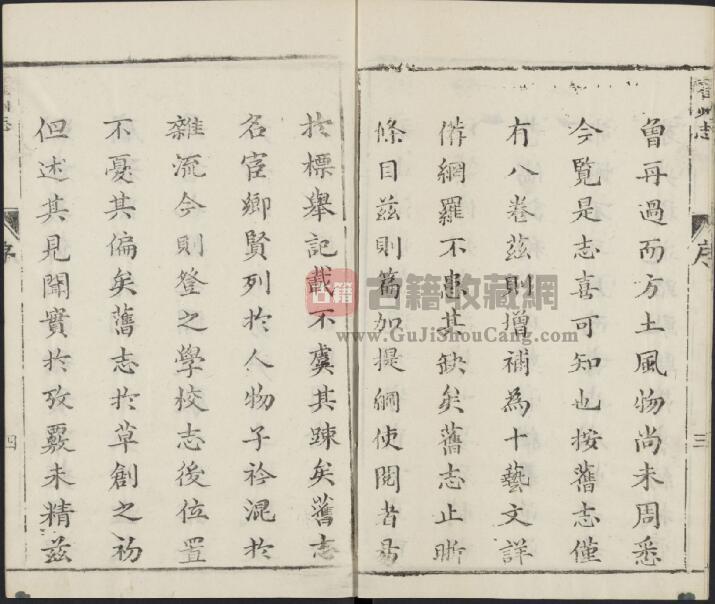 曾再過而方土風物尚未周悉
今覽是志喜可知也按舊志僅
有八卷茲則增補為十藝文詳
備網羅不患其缺矣舊志止晰
條目茲則篇加提綱使閱者易
三
於標舉記載不虞其踈矣舊志
名宦鄉賢列於人物子衿混於
雜流今則登之學校志後位置
不憂其偏矣舊志於草創之初
但述其見聞實於攷覈未精茲
序
四
古籍
古籍收藏網
www.GuJiShouCang.com